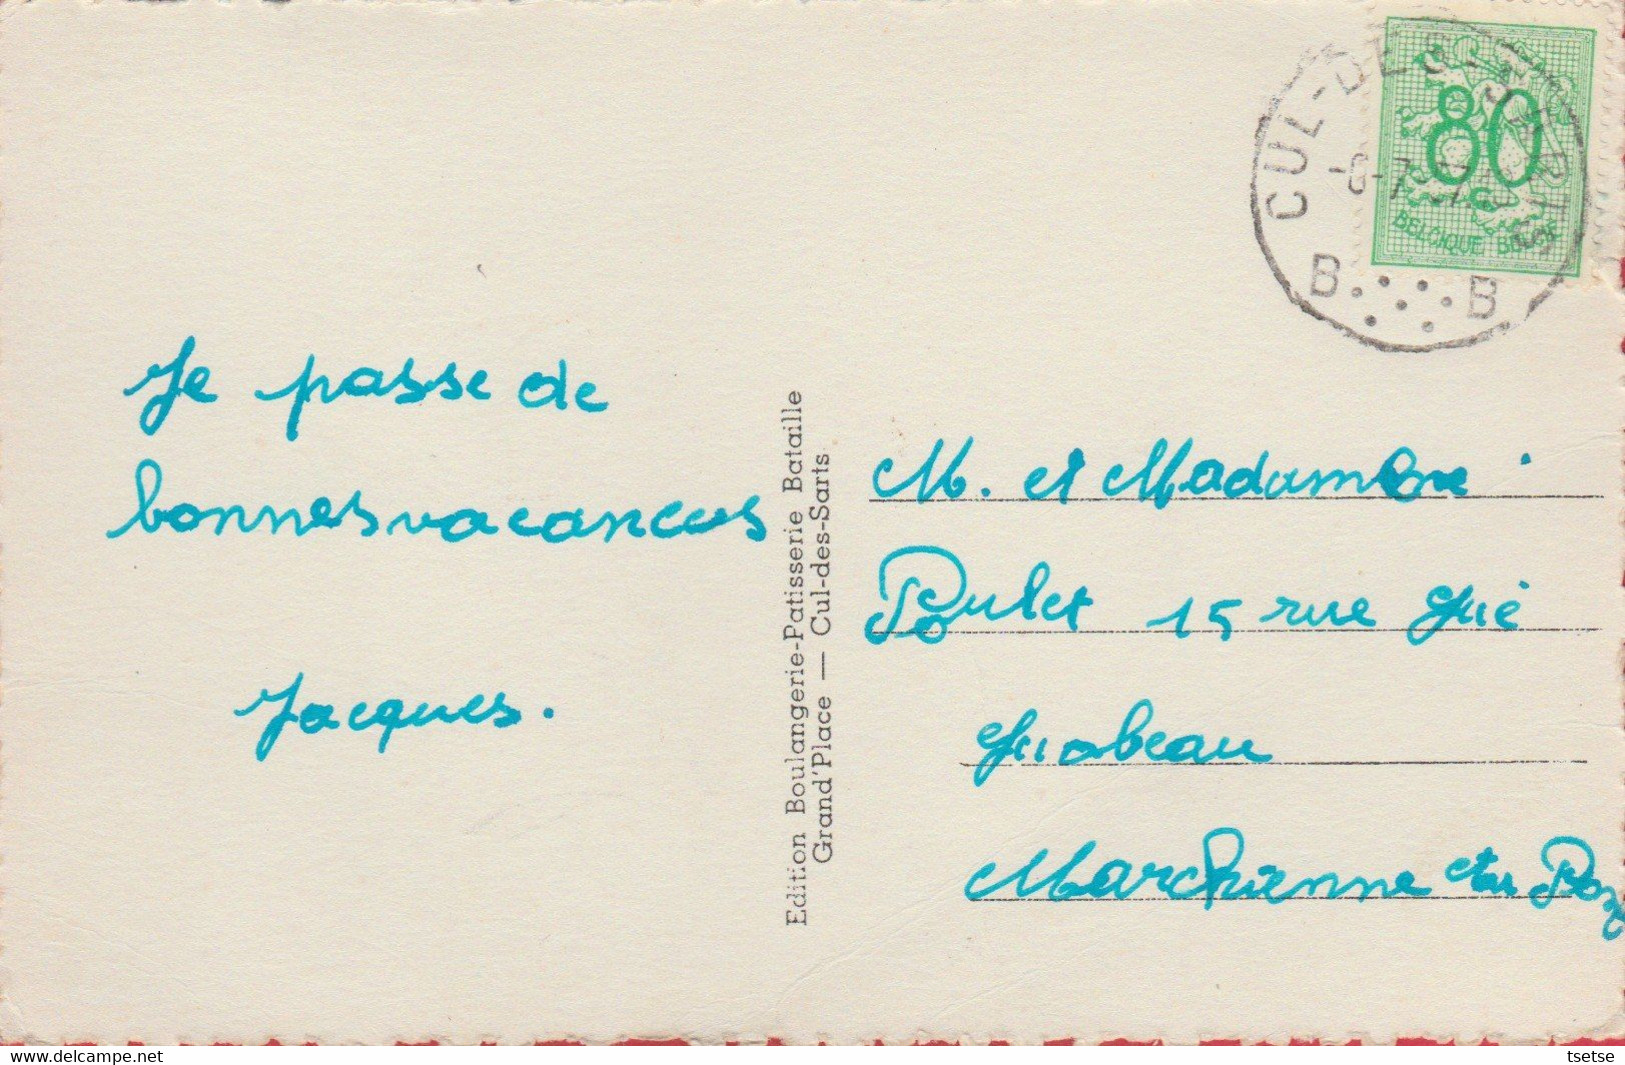 CUL-DES-SARTS
80
BELGIQUE BELGIË
B B
Je passe de
bonnes vacances
Jacques.
Edition Boulangerie-Patisserie Bataille
Grand'Place — Cul-des-Sarts
M. et Madame
Poulet 15 rue
Mirabeau
Marchienne au Pont
delcampe.net
tsetse